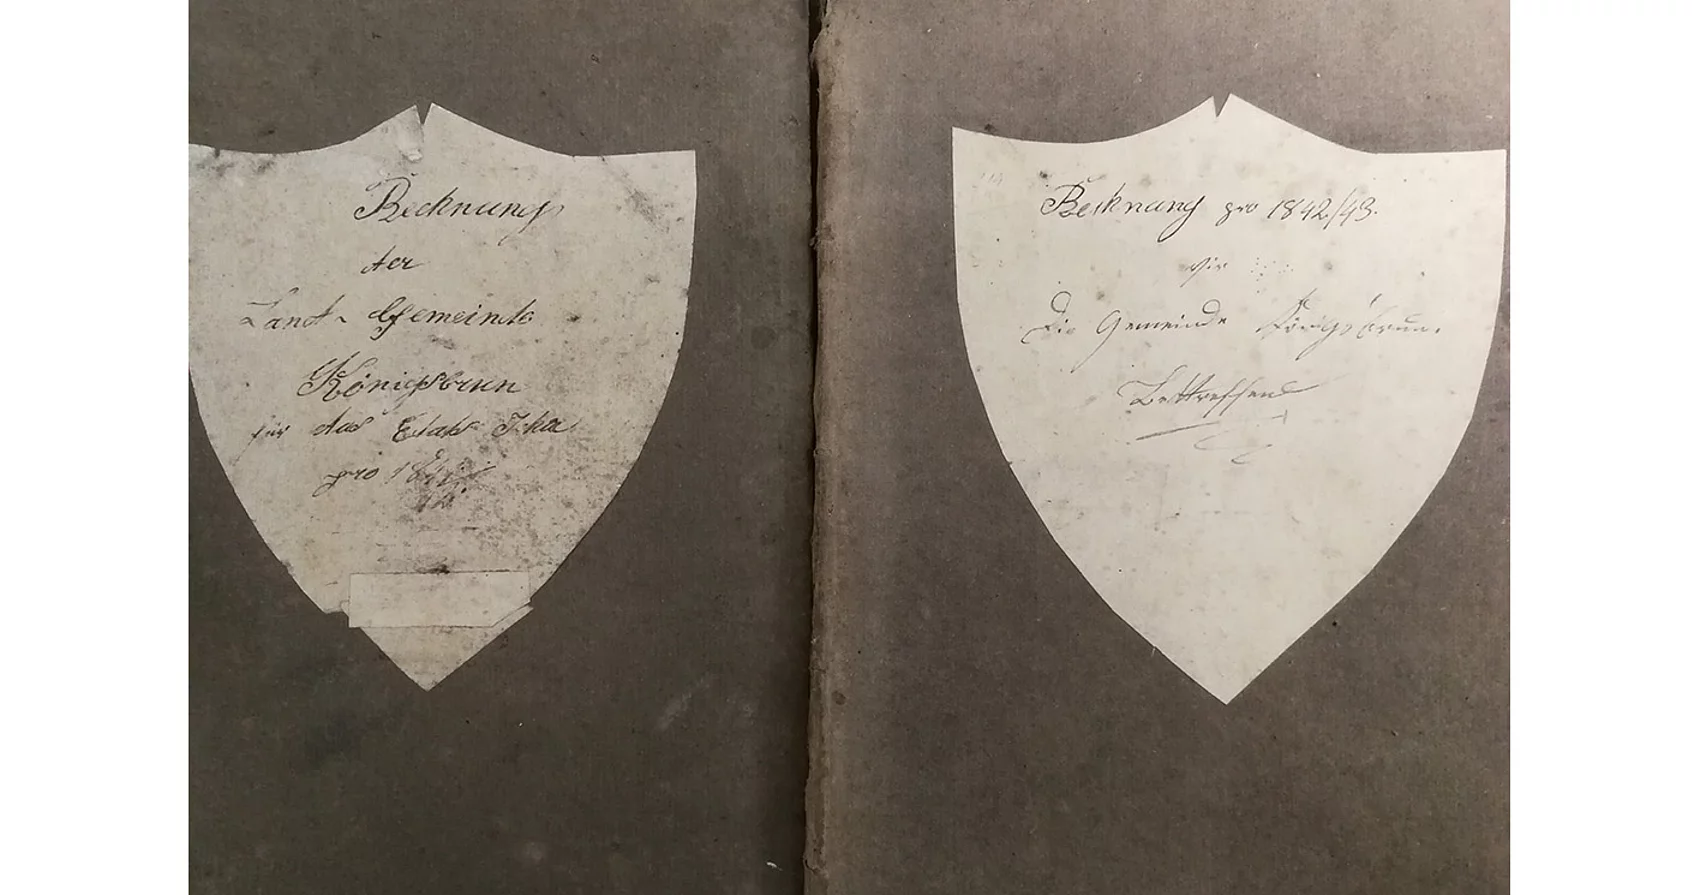 Rechnung
der
Land- Gemeinde
Königsbrun
für das Etats
pro
Rechnung pro 1842/43.
Die Gemeinde Königsbrun.
Bettreffend